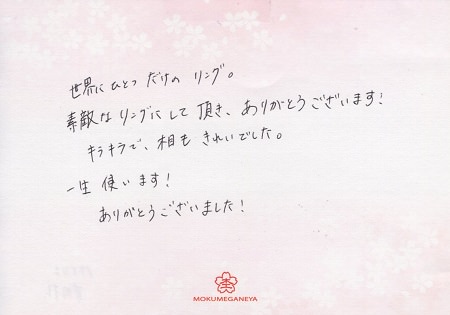 世界にひとつ だけの リング。
素敵なリングにして頂き、ありがとうございます!
キラキラで、相も きれいでした。
一生 使います!
ありがとうございました!
MOKUMEGANEYA